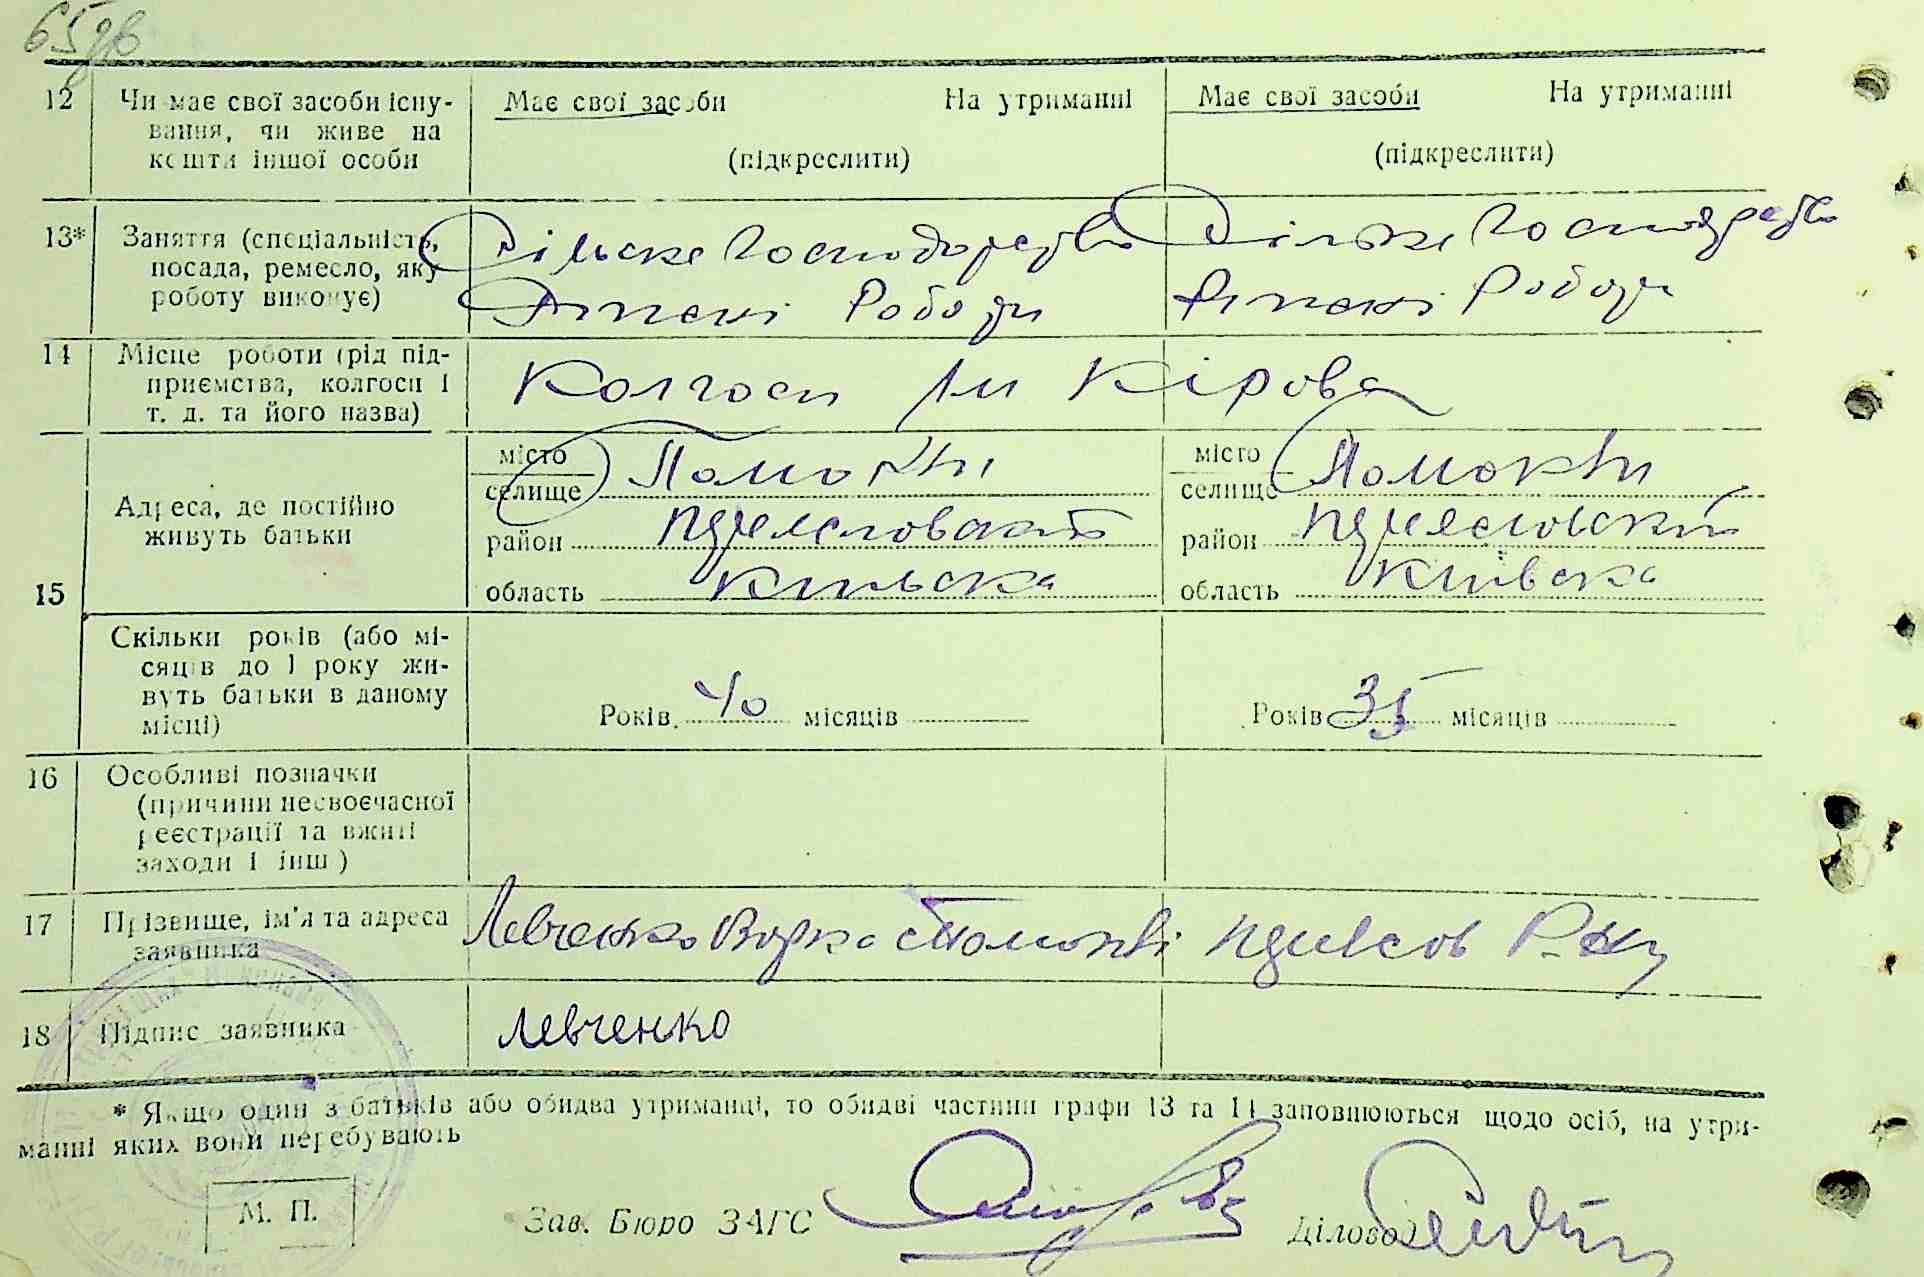 65зв
12 Чи має свої засоби існу- Має свої засоби На утриманні Має свої засоби На утриманні
вання, чи живе на
кошти іншої особи (підкреслити) (підкреслити)
13* Заняття (спеціальність, Сільске Господарство Сільске Господарство
посада, ремесло, яку
роботу виконує) Роботи Роботи
14 Місце роботи (рід під- Колгосп Ім Кірова
приємства, колгосп і
т. д. та його назва)
місто Помокли місто Помокли
селище селище
15 Адреса, де постійно
живуть батьки
район район
область Київська область Київська
Скільки років (або мі-
сяців до 1 року жи-
вуть батьки в даному
місці) Років 40 місяців Років 35 місяців
16 Особливі позначки
(причини несвоєчасної
реєстрації та вжиті
заходи і інш)
17 Прізвище, ім'я та адреса Левченко с Помоклі Р-ну
заявника
18 Підпис заявника Левченко
* Якщо один з батьків або обидва утриманці, то обидві частини графи 13 та 14 заповнюються щодо осіб, на утри-
манні яких вони перебувають
М. П.
Зав. Бюро ЗАГС Діловод